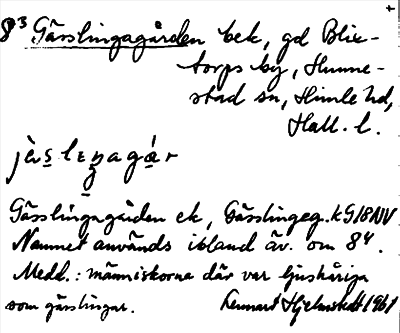 8³ Gässlingagården bek, gd Blix-
torps by, Hunne-
stad sn, Himle hd,
Hall. l.
jɛ̀s̠lɛŋagá̠r
Gässlingagården ek, Gässlingeg. kG18NV
Namnet används ibland äv. om 8⁴.
Medd.: människorna där var ljushåriga
som gässlingar. Lennart Hjelmstedt 1961